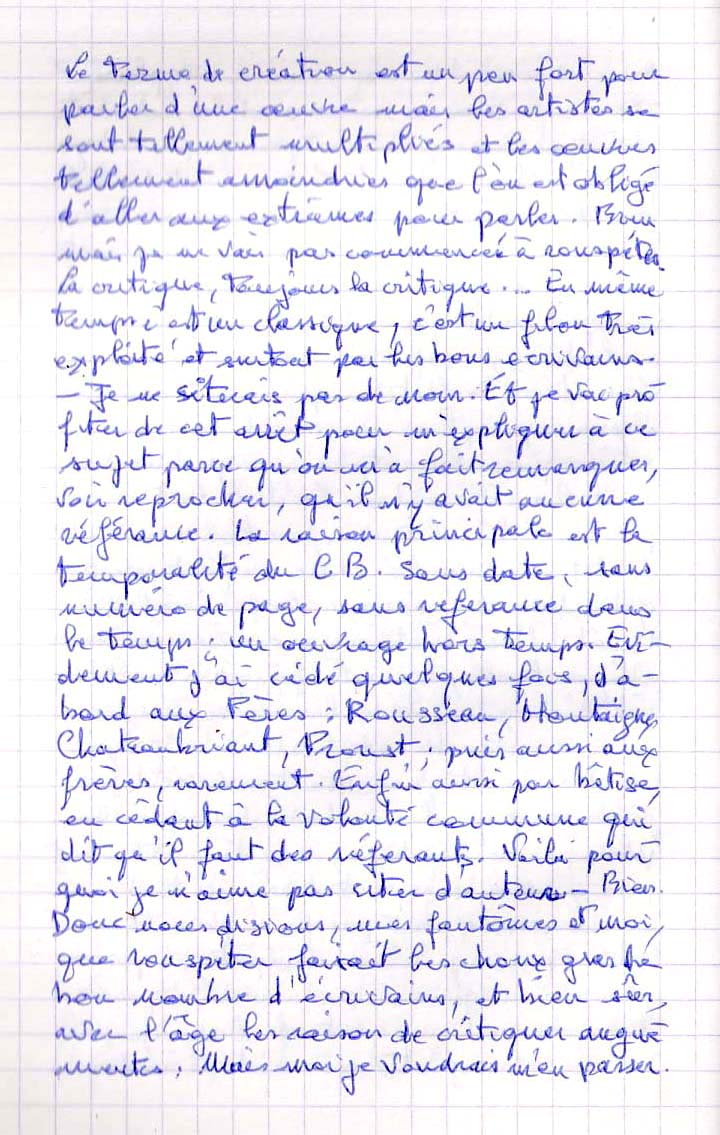 Le terme de création est un peu fort pour
parler d'une œuvre mais les artistes se
sont tellement multipliés et les œuvres
tellement amoindries que l'on est obligé
d'aller aux extrêmes pour parler. Bon
mais je ne vais pas commencé à rouspéter
la critique, toujours la critique... En même
temps c'est un classique, c'est un filon très
exploité et surtout par les bons écrivains.
- Je ne siterais pas de nom. Et je vai pro
fiter de cet arrêt pour m'expliquer à ce
sujet parce qu'on m'a fait remarquer,
voir reprocher, qu'il n'y avait aucune
référance. La raison principale est la
temporalité du C B. Sans date, sans
numéro de page, sans referance dans
le temps ; un ouvrage hors temps. Evi-
demment j'ai cédé quelques fois, d'a-
bord aux Pères : Rousseau, Montaigne,
Chateaubriant, Proust ; puis aussi aux
frères, rarement. Enfin aussi par bêtise,
en cédant à la volonté commune qui
dit qu'il faut des référants. Voilà pour
quoi je n'aime pas siter d'auteur - Bien.
Donc nous disions, mes fantômes et moi,
que rouspéter faisait les choux gras de
bon nombre d'écrivains, et bien sûr,
avec l'âge les raison de critiquer augme
mentes. Mais moi je voudrais m'en passer.